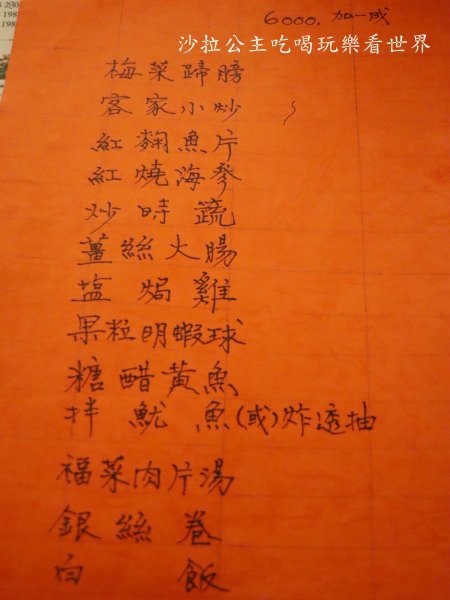 6000. 加一成
沙拉公主吃喝玩樂看世界
梅菜蹄膀
客家小炒
紅麴魚片
紅燒海參
炒時蔬
薑絲大腸
塩焗雞
果粒明蝦球
糖醋黃魚
拌魷魚(或)炸透抽
福菜肉片湯
銀絲卷
白飯